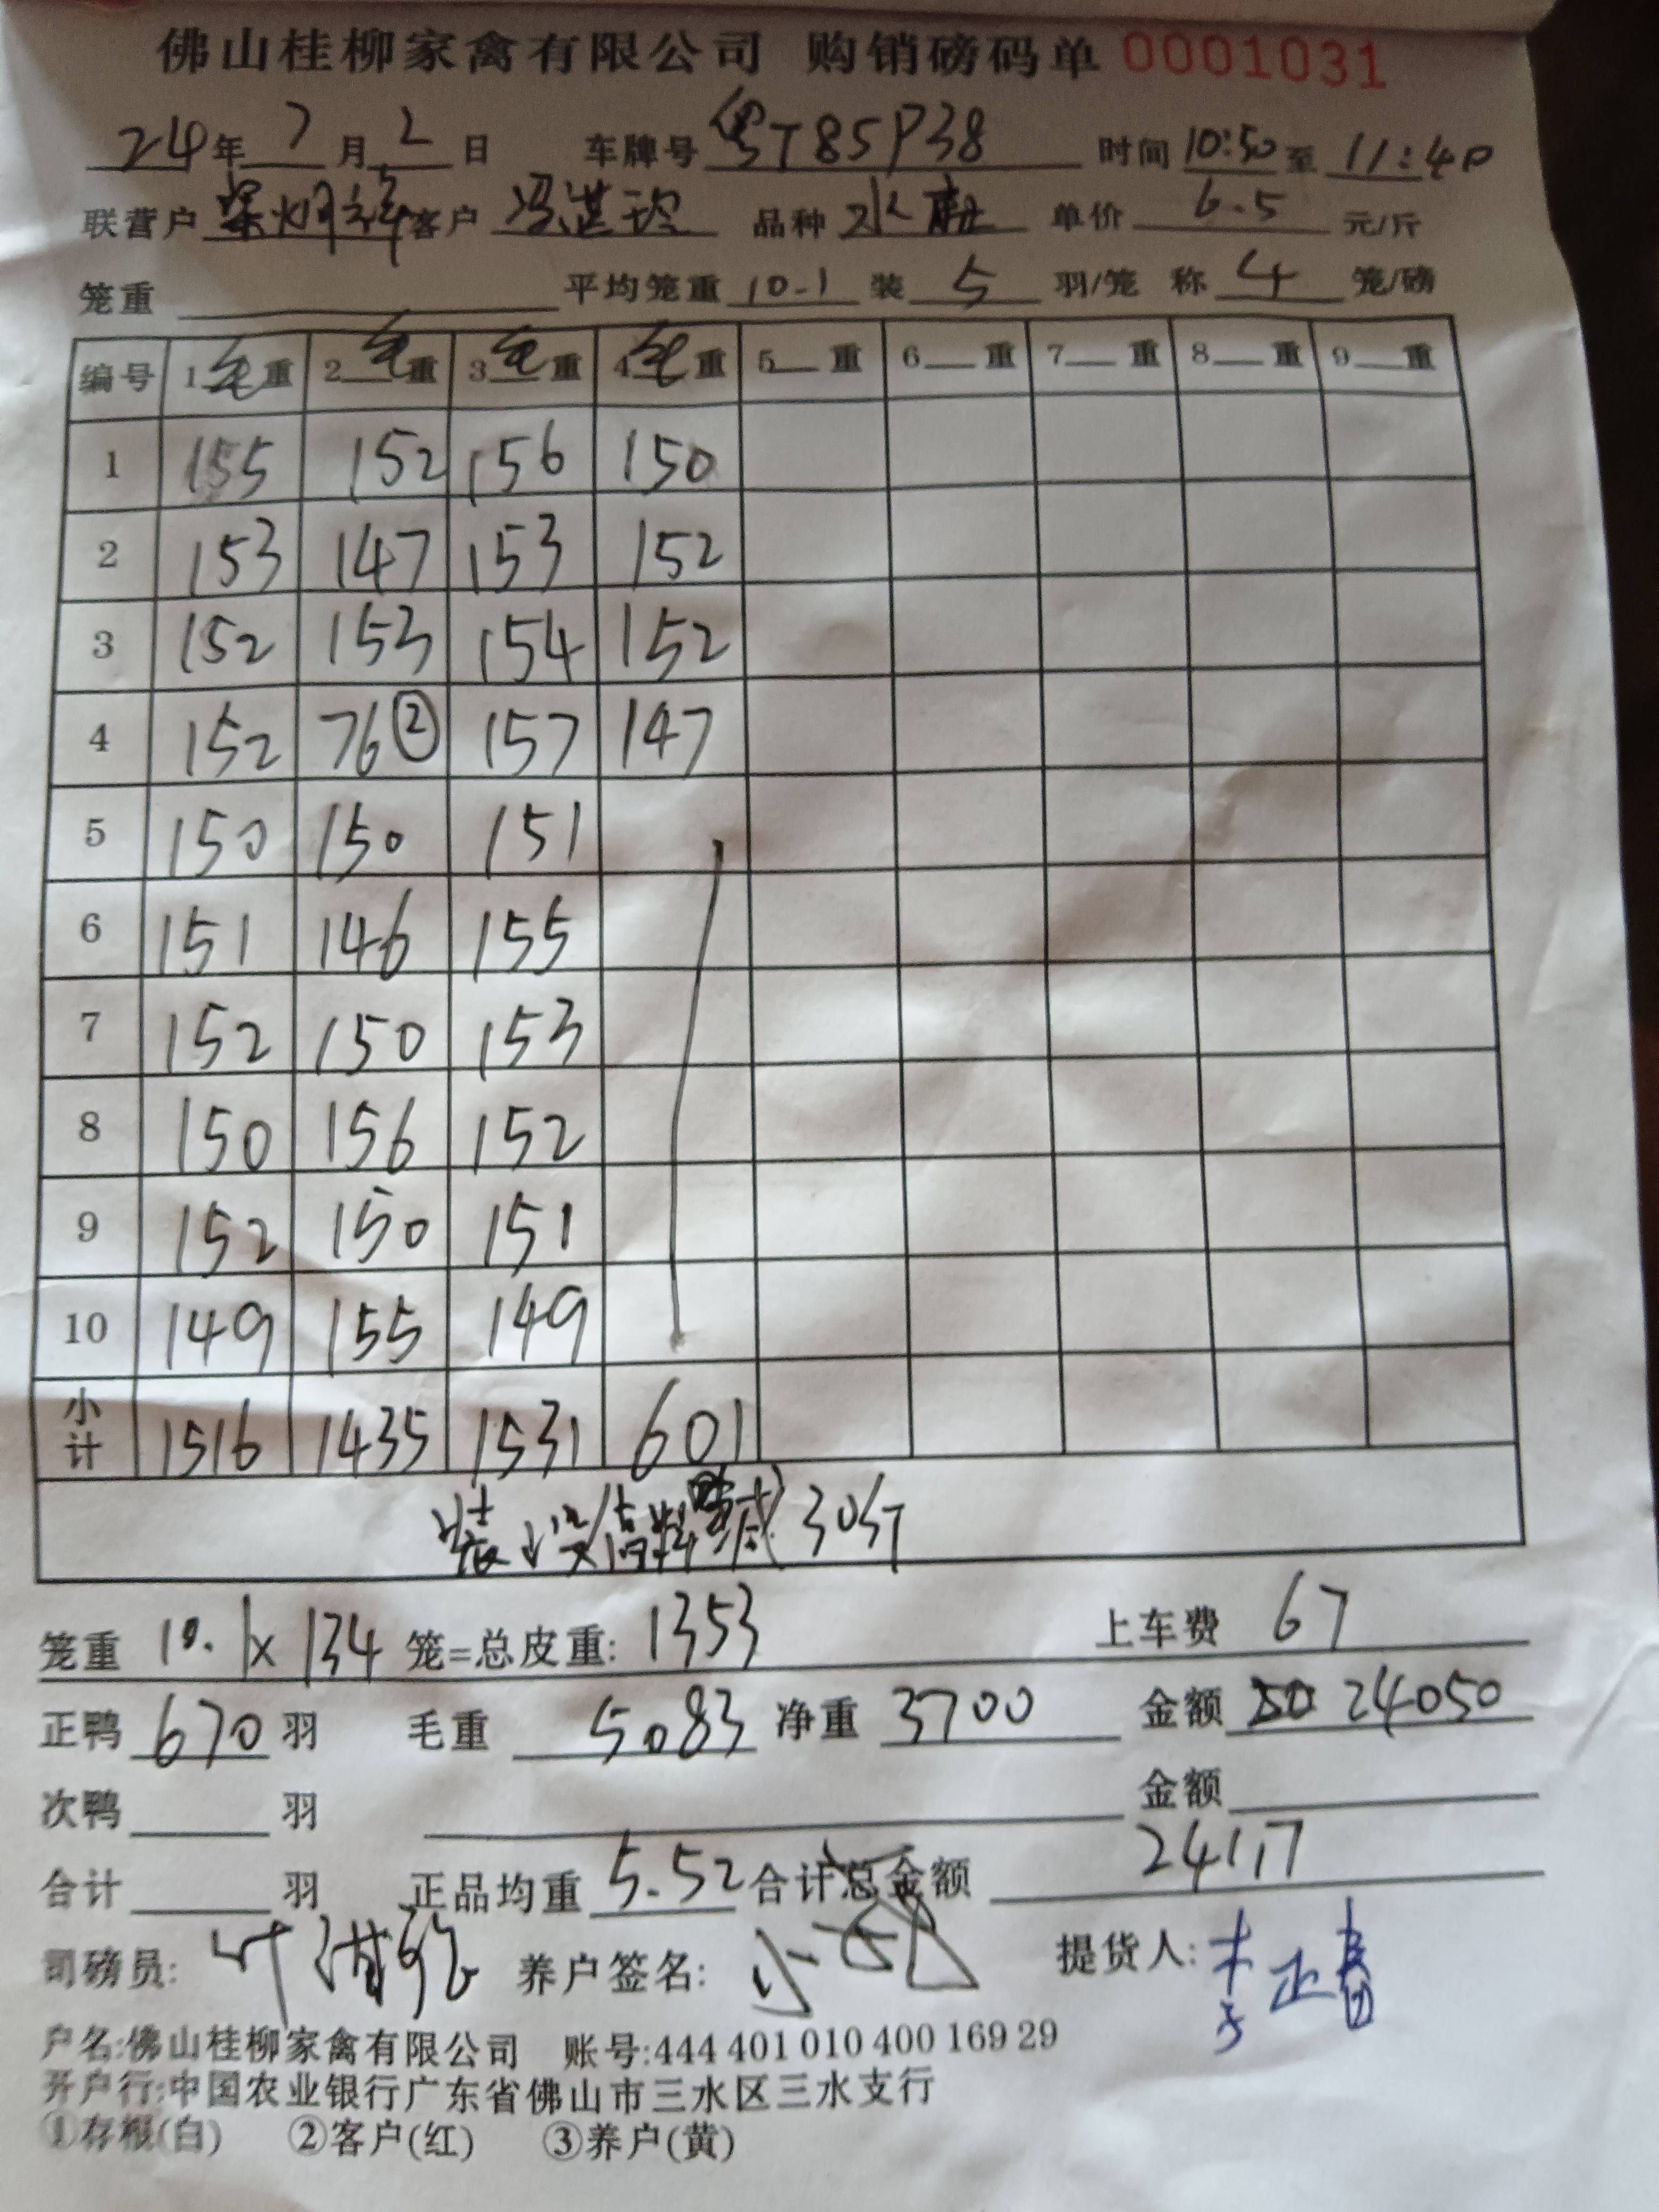 佛山桂柳家禽有限公司 购销磅码单 0001031
24年7月2日 车牌号 粤T85P38 时间 10:50 至 11:40
联营户 客户 品种 水鸭 单价 6.5 元/斤
笼重 平均笼重 10.1 装 5 羽/笼 称 4 笼/磅
编号 1毛重 2毛重 3毛重 4毛重 5 重 6 重 7 重 8 重 9 重
1 155 152 156 150
2 153 147 153 152
3 152 153 154 152
4 152 76② 157 147
5 150 150 151
6 151 146 155
7 152 150 153
8 150 156 152
9 152 150 151
10 149 155 149
小计 1516 1435 1531 601
减30斤
笼重 10.1x134 笼=总皮重: 1353 上车费 67
正鸭 670 羽 毛重 5083 净重 3700 金额 24050
次鸭 羽 金额
合计 羽 正品均重 5.52 合计总金额 24117
司磅员: 叶 养户签名: 提货人: 李
户名:佛山桂柳家禽有限公司 账号:444 401 010 400 169 29
开户行:中国农业银行广东省佛山市三水区三水支行
①存根(白) ②客户(红) ③养户(黄)